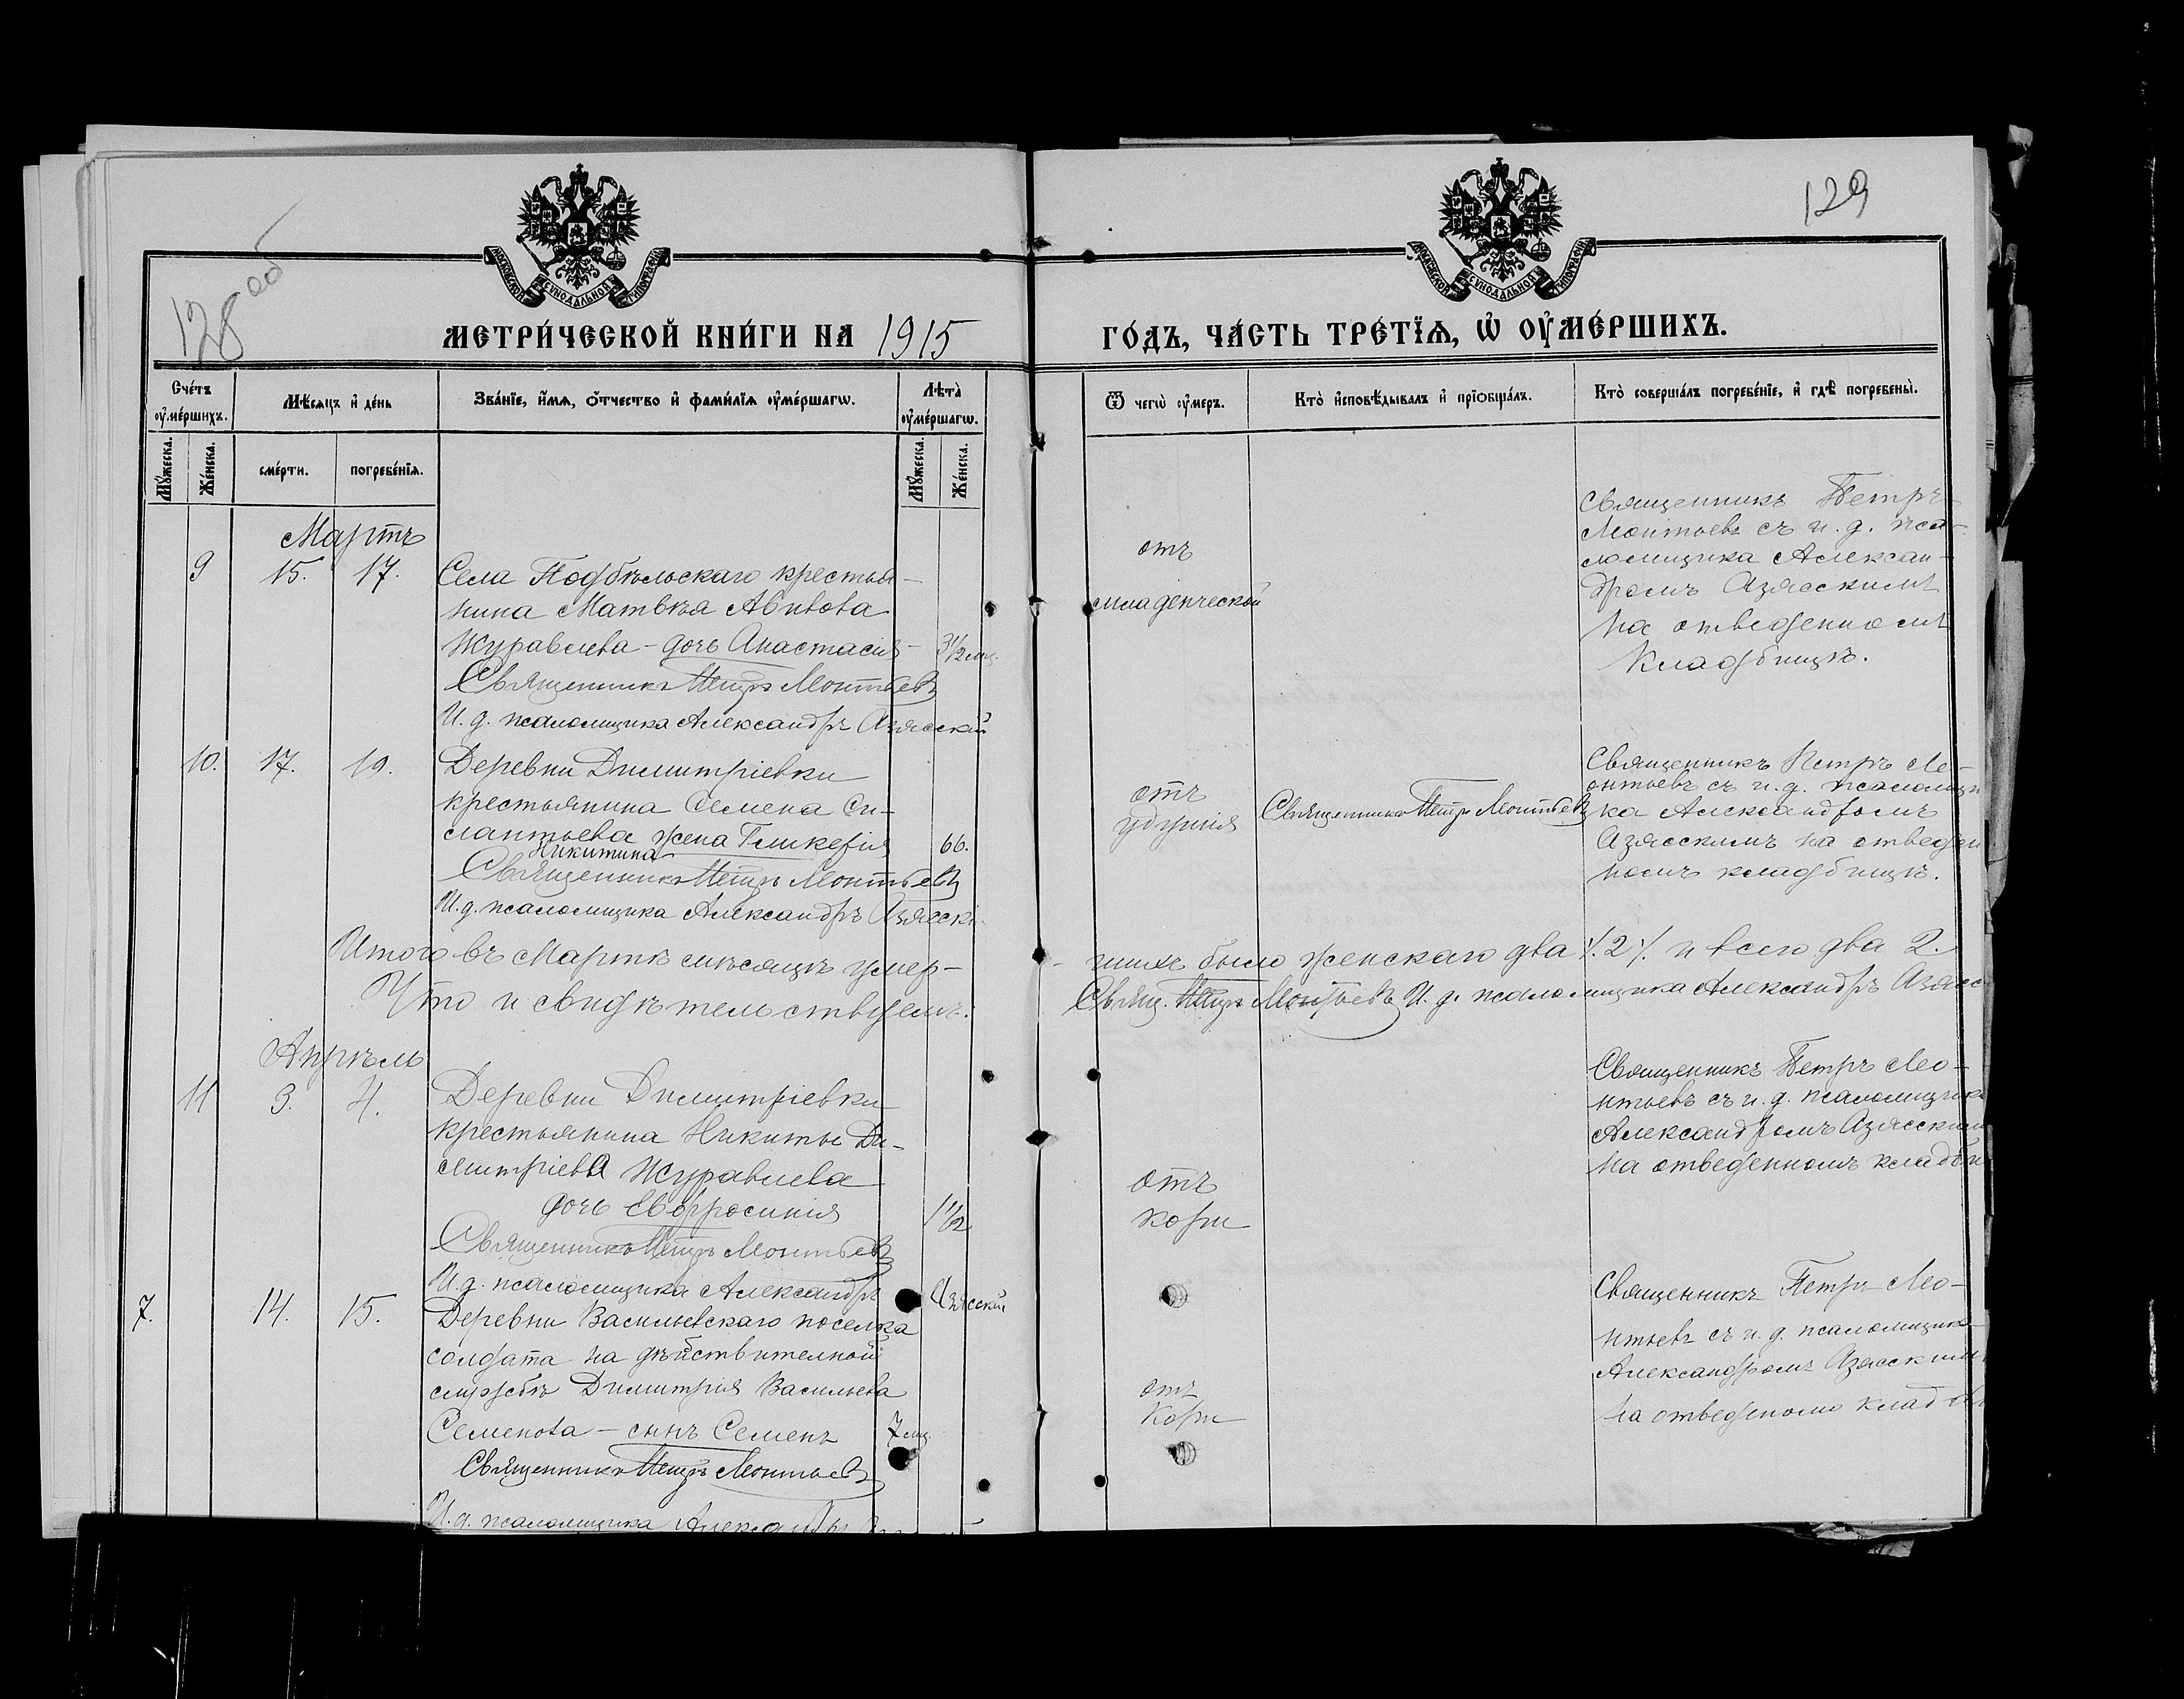 128 об
129
МЕТРИ́ЧЕСКОЙ КНИ́ГИ НА 1915 ГО́ДЪ, ЧА́СТЬ ТРЕ́ТЇѦ, Ѡ҆ ОУ҆МЕ́РШИХЪ.
МОСКОВСКОЙ СѴНОДАЛЬНОЙ ТИПОГРАФІИ
МОСКОВСКОЙ СѴНОДАЛЬНОЙ ТИПОГРАФІИ
Сче́тъ оу҆ме́ршихъ.
Мѣ́сѧцъ и҆ де́нь
Зва́нїе, и҆́мѧ, ѻ҆́тчество и҆ фами́лїѧ оу҆ме́ршагѡ.
Лѣ́та оу҆ме́ршагѡ.
Ѿ чегѡ̀ оу҆́меръ.
Кто̀ и҆сповѣ́дывалъ и҆ прїѡбща́лъ.
Кто̀ соверша́лъ погребе́нїе, и҆ гдѣ̀ погребены̀.
Мꙋ́жеска.
Же́нска.
сме́рти.
погребе́нїѧ.
Мꙋ́жеска.
Же́нска.
Мартъ
9 15. 17.
Села Подбѣльскаго крестья-
нина Матвѣя Авивова
Журавлева - дочь Анастасія - 3½ мц.
Священникъ Петръ Леонтьевъ
И. д. псаломщика Александръ Азясскій
отъ
младенческой
Священникъ Петръ
Леонтьевъ съ и. д. пса-
ломщика Алексан-
дромъ Азясскимъ
на отведенномъ
кладбищѣ.
10. 17. 19.
Деревни Димитріевки
крестьянина Семена Си-
лантьева жена Гликерія 66.
Никитина
Священникъ Петръ Леонтьевъ
И. д. псаломщика Александръ Азясскі
отъ
удушія
Священникъ Петръ Леонтьевъ
Священникъ Петръ Ле-
онтьевъ съ и. д. псаломщи
ка Александромъ
Азясскимъ на отведен
номъ кладбищѣ.
Итого въ Мартѣ мѣсяцѣ умер- - шихъ было женскаго два ⁒2⁒ и всего два 2.
Что и свидѣтельствуемъ: Свящ. Петръ Леонтьевъ И. д. псаломщика Александръ Азясс
Апрѣль
11 3. 4.
Деревни Димитріевки
крестьянина Никиты Ди-
митріева Журавлева
дочь Евфросинія 1½
Священникъ Петръ Леонтьевъ
И. д. псаломщика Александръ Азясскій
отъ
кори
Священникъ Петръ Лео-
нтьевъ съ и. д. псаломщика
Александромъ Азясским
на отведенномъ кладби
7. 14. 15.
Деревни Васильевскаго поселка
солдата на дѣйствителной
службѣ Димитрія Васильева
Семенова - сынъ Семенъ 7 мц.
Священникъ Петръ Леонтьевъ
И. д. псаломщика Александръ
отъ
кори
Священникъ Петръ Лео-
нтьевъ съ и. д. псаломщика
Александромъ Азясскимъ
на отведеномъ кладби